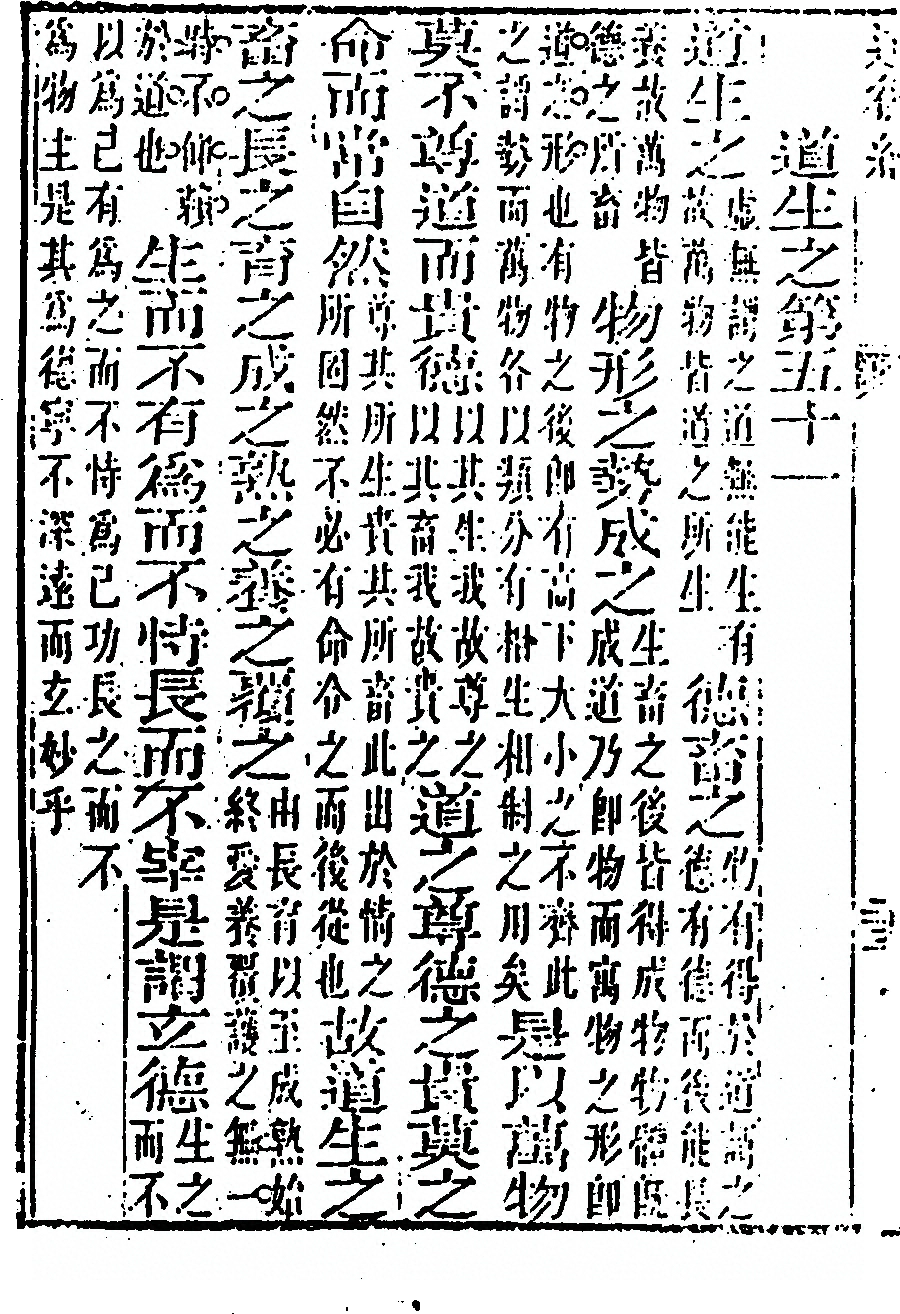 道生之第五十一
道生之虛無謂之道無能生有故萬物皆道之所生德畜之物有得於道謂之德有德而後能長
養故萬物皆德之所畜物形之勢成之生畜之後皆得成物物體既成道乃即物而寓物之形即
道之形也有物之後即有高下大小之不齊此之謂勢而萬物各以類分有相生相制之用矣是以萬物
莫不尊道而貴德以其生我故尊之以其畜我故貴之道之尊德之貴莫之
命而常自然尊其所生貴其所畜此出於情之所固然不必有命令之而後從也故道生之
畜之長之育之成之熟之養之覆之由長育以至成熟始終愛養覆護之無一
時不仰賴於道也生而不有爲而不恃長而不宰是謂玄德生之而不
以爲己有爲之而不恃爲己功長之而不爲物主是其爲德寧不深遠而玄妙乎